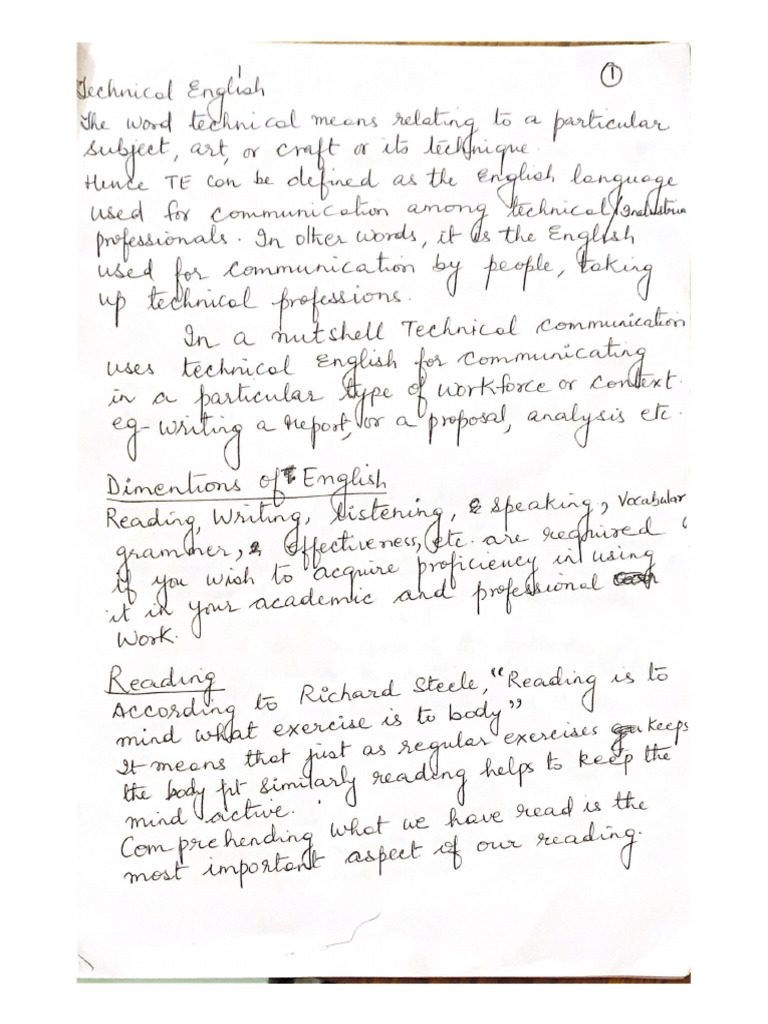 ①
Technical English
The word technical means relating to a particular
subject, art, or craft or its technique.
Hence TE can be defined as the English language
used for communication among technical/Industria
professionals. In other words, it is the English
used for communication by people, taking
up technical professions.
In a nutshell Technical communication
uses technical English for communicating
in a particular type of workforce or context.
eg- writing a report, or a proposal, analysis etc.
Dimentions of T English
Reading, Writing, listening, & speaking, Vocabular
grammer, & effectiveness, etc. are required
if you wish to acquire proficiency in using
it in your academic and professional
work.
Reading
According to Richard Steele, "Reading is to
mind what exercise is to body"
It means that just as regular exercises keeps
the body fit similarly reading helps to keep the
mind active.
Comprehending what we have read is the
most important aspect of our reading.